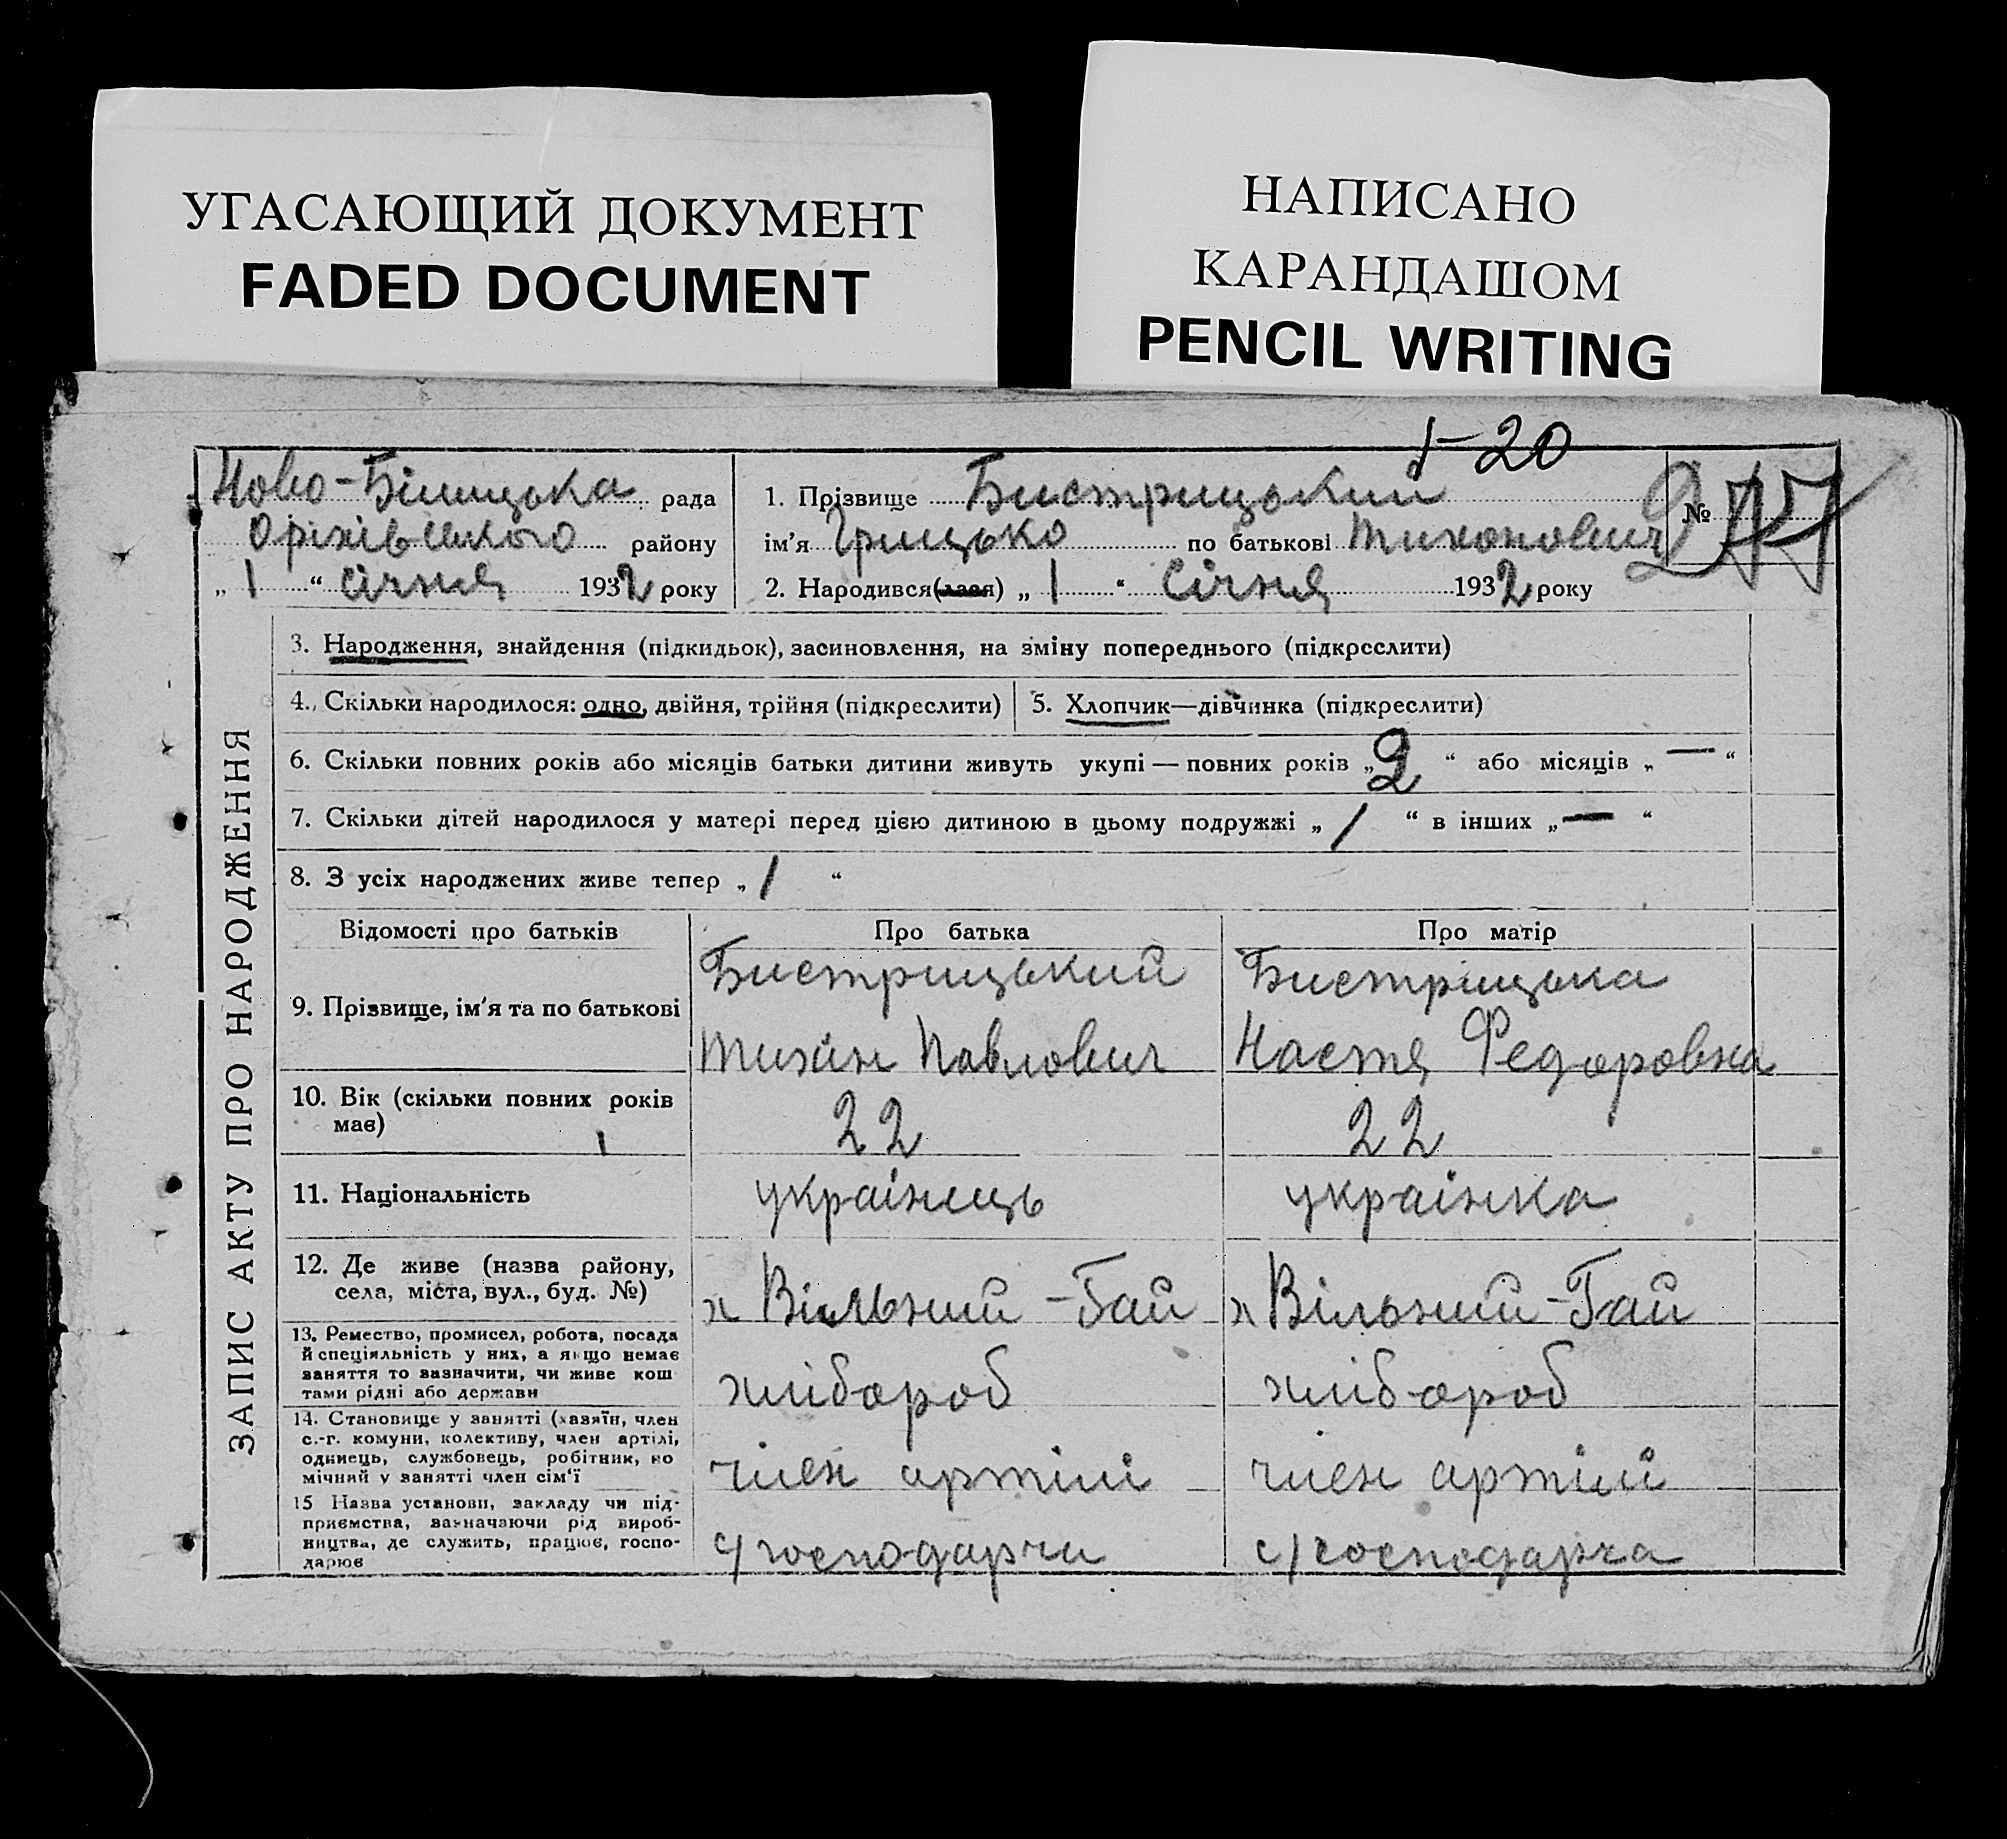 УГАСАЮЩИЙ ДОКУМЕНТ
FADED DOCUMENT
НАПИСАНО
КАРАНДАШОМ
PENCIL WRITING
20
Ново-Білицька рада
Оріхівського району
„ 1 “ січня 1932 року
1. Прізвище Бистрицький
ім'я Грицько по батькові Тихонович
№
2. Народився(лася) „ 1 “ Січня 1932 року
ЗАПИС АКТУ ПРО НАРОДЖЕННЯ
3. Народження, знайдення (підкидьок), засиновлення, на зміну попереднього (підкреслити)
4. Скільки народилося: одно, двійня, трійня (підкреслити)
5. Хлопчик—дівчинка (підкреслити)
6. Скільки повних років або місяців батьки дитини живуть укупі — повних років „ 2 “ або місяців „ — “
7. Скільки дітей народилося у матері перед цією дитиною в цьому подружжі „ 1 “ в інших „ — “
8. З усіх народжених живе тепер „ 1 “
Відомості про батьків Про батька Про матір
9. Прізвище, ім'я та по батькові
Бистрицький
Тихін Павлович
Бистріцька
Настя Федоровна
10. Вік (скільки повних років
має)
22 22
11. Національність українець українка
12. Де живе (назва району,
села, міста, вул., буд. №)
х Вільний-Гай х Вільний-Гай
13. Ремество, промисел, робота, посада
й спеціяльність у них, а якщо немає
заняття то зазначити, чи живе кош
тами рідні або держави
хлібороб хлібороб
14. Становище у занятті (хазяїн, член
с.-г. комуни, колективу, член артілі,
одинець, службовець, робітник, по
мічний у занятті член сім'ї
член артілі член артілі
15 Назва установи, закладу чи під-
приємства, зазначаючи рід вироб-
ництва, де служить, працює, госпо-
дарює
с/господарчи с/господарча